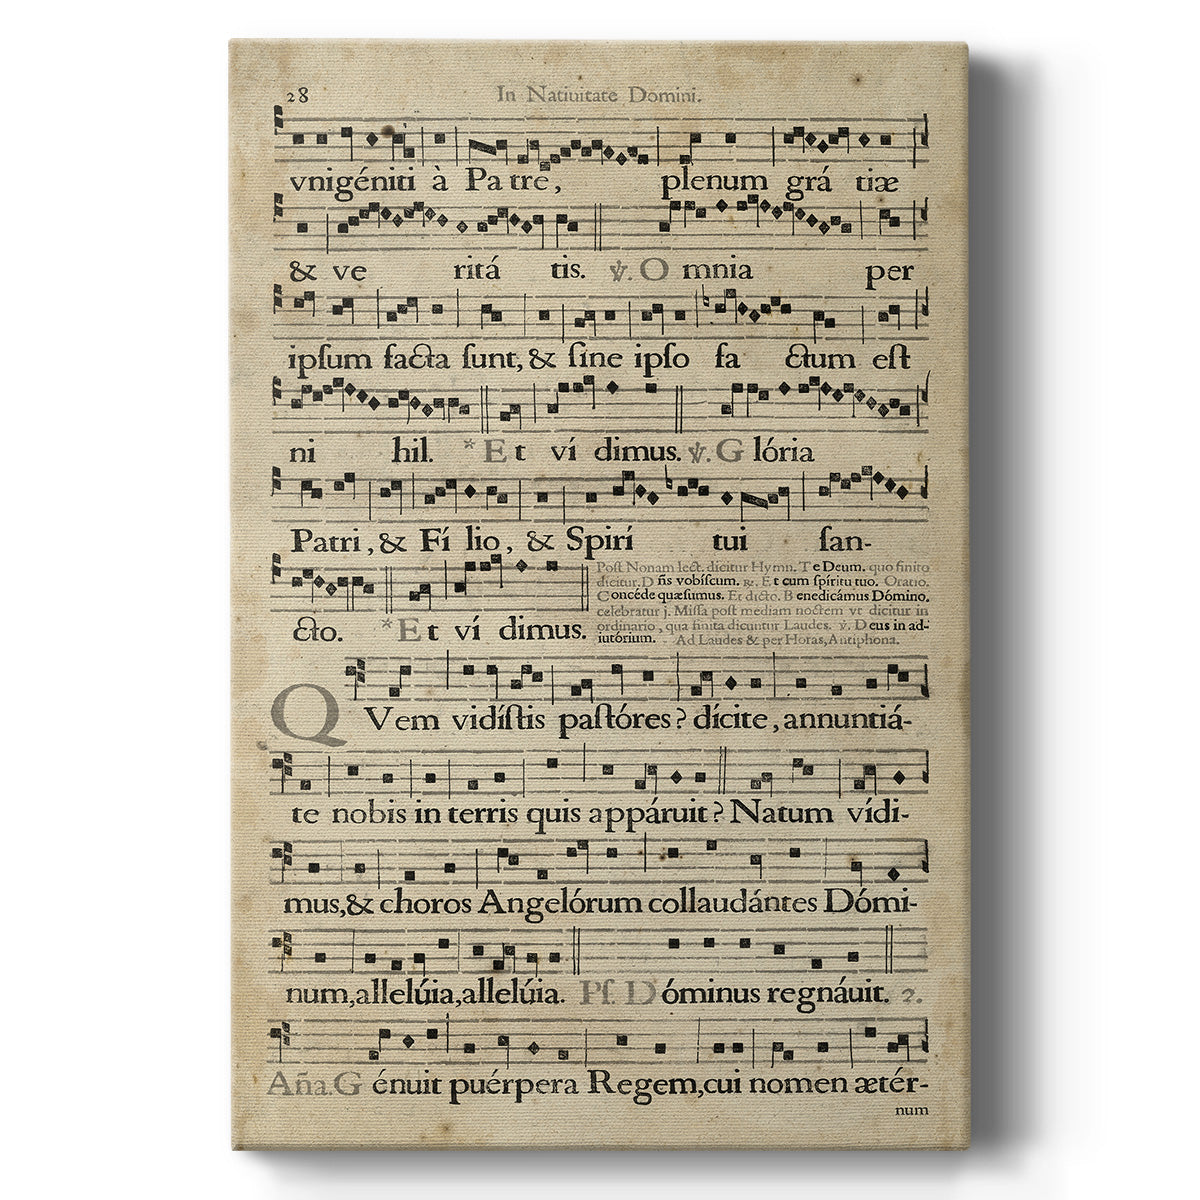 28 In Natiuitate Domini.
vnigéniti à Pa tre, plenum grá tiæ
& ve ritá tis. ℣. O mnia per
ipſum facta ſunt, & ſine ipſo fa ctum eſt
ni hil. * Et ví dimus. ℣. G lória
Patri, & Fí lio, & Spirí tui ſan-
Poſt Nonam lect. dicitur Hymn. Te Deum. quo finito
dicitur. D ñs vobíſcum. ℞. Et cum ſpíritu tuo. Oratio.
Concéde quæſumus. Et dicto. B enedicámus Dómino.
celebratur j. Miſſa poſt mediam noctem vt dicitur in
ordinario, qua finita dicuntur Laudes. ℣. Deus in ad-
iutórium. Ad Laudes & per Horas, Antiphona.
cto. * Et ví dimus.
QVem vidíſtis paſtóres? dícite, annuntiá-
te nobis in terris quis appáruit? Natum vídi-
mus, & choros Angelórum collaudántes Dómi-
num, allelúia, allelúia. Pſ. Dóminus regnáuit. 2.
Aña. G énuit puérpera Regem, cui nomen ætér-
num